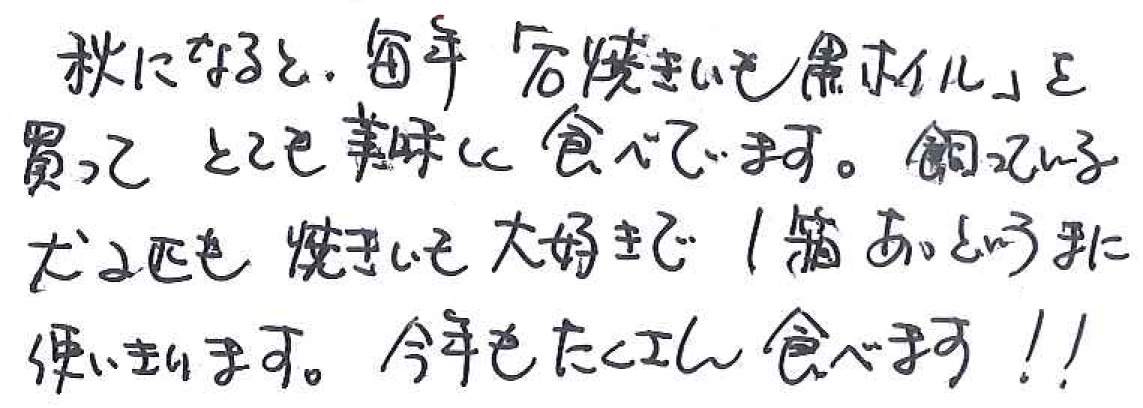 秋になると、毎年「石焼きいも黒ホイル」を
買って とても美味しく食べています。飼っている
犬2匹も 焼きいも大好きで 1箱あっというまに
使いきります。今年もたくさん食べます!!